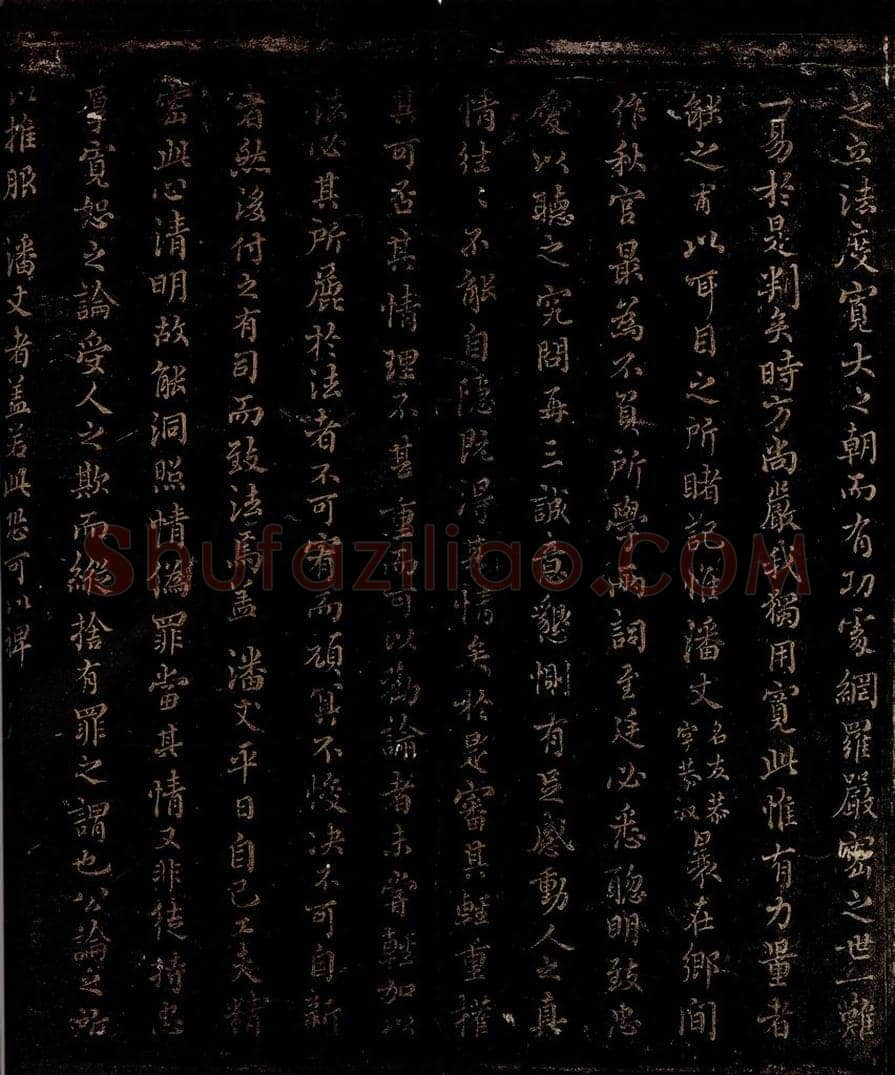 之立法度寬大之朝而有功處網羅嚴密之世一難
一易於是判矣時方尚嚴我獨用寬此惟有力量者
能之甫以耳目之所睹記惟潘丈名友恭字恭叔最在鄉間
作秋官最為不負所學兩詞至廷必悉聰明致忠
愛以聽之究問再三誠意懇惻有足感動人之真
情往〻不能自隱既得其情矣於是審其輕重權
其可否其情理不甚重而可以勸諭者未嘗輕加以
法必其所麗於法者不可宥而頑冥不悛決不可自新
者然後付之有司而致法焉蓋潘丈平日自己工夫精
密此心清明故能洞照情偽罪當其情又非徒持忠
厚寬恕之論受人之欺而縱捨有罪之謂也公論之
以推服潘丈者蓋若此恐可以裨
Shufaziliao.COM